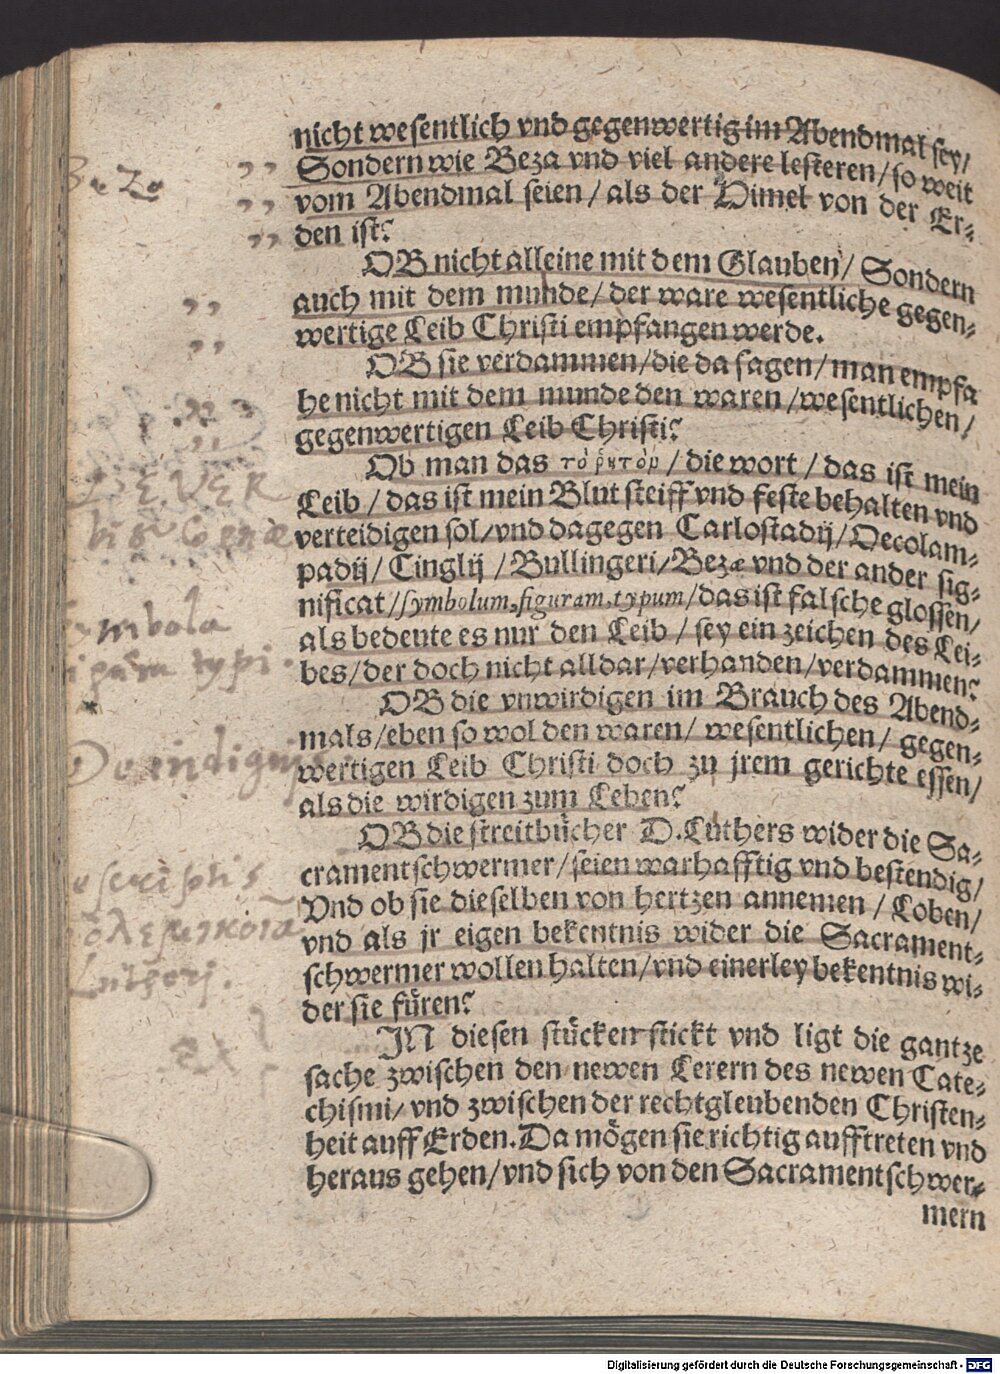 nicht wesentlich vnd gegenwertig im Abendmal sey/
Beza
Sondern wie Beza vnd viel andere lesteren/ so weit
vom Abendmal seien / als der Himel von der Er⸗
den ist?
OB nicht alleine mit dem Glauben/ Sondern
auch mit dem munde/ der ware wesentliche gegen⸗
wertige Leib Christi empfangen werde.
OB sie verdammen/die da sagen/ man empfa
he nicht mit dem munde den waren /wesentlichen/
gegenwertigen Leib Christi?
Ob man das τὸ ῥητὸμ / die wort / das ist mein
Leib / das ist mein Blut steiff vnd feste behalten vnd
verteidigen sol/vnd dagegen Carlostadij/ Oecolam⸗
padij/ Cinglij / Bullingeri/ Bezæ vnd der ander sig⸗
nificat/symbolum,figuram,typum/das ist falsche glossen/
Symbola
als bedeute es nur den Leib / sey ein zeichen des Lei⸗
figura typi.
bes/der doch nicht alldar/verhanden/verdammen?
OB die vnwirdigen im Brauch des Abend⸗
mals/eben so wol den waren/ wesentlichen/ gegen⸗
De indignis
wertigen Leib Christi doch zu jrem gerichte essen/
als die wirdigen zum Leben?
OB die streitbücher D. Luthers wider die Sa⸗
cramentschwermer/seien warhafftig vnd bestendig/
Vnd ob sie dieselben von hertzen annemen / Loben/
vnd als jr eigen bekentnis wider die Sacrament⸗
schwermer wollen halten/vnd einerley bekentnis wi⸗
Lutheri.
der sie füren?
JN diesen stücken stickt vnd ligt die gantze
sache zwischen den newen Lerern des newen Cate⸗
chismi/ vnd zwischen der rechtgleubenden Christen⸗
heit auff Erden. Da mögen sie richtig aufftreten vnd
heraus gehen/ vnd sich von den Sacramentschwer⸗
mern
Digitalisierung gefördert durch die Deutsche Forschungsgemeinschaft - DFG